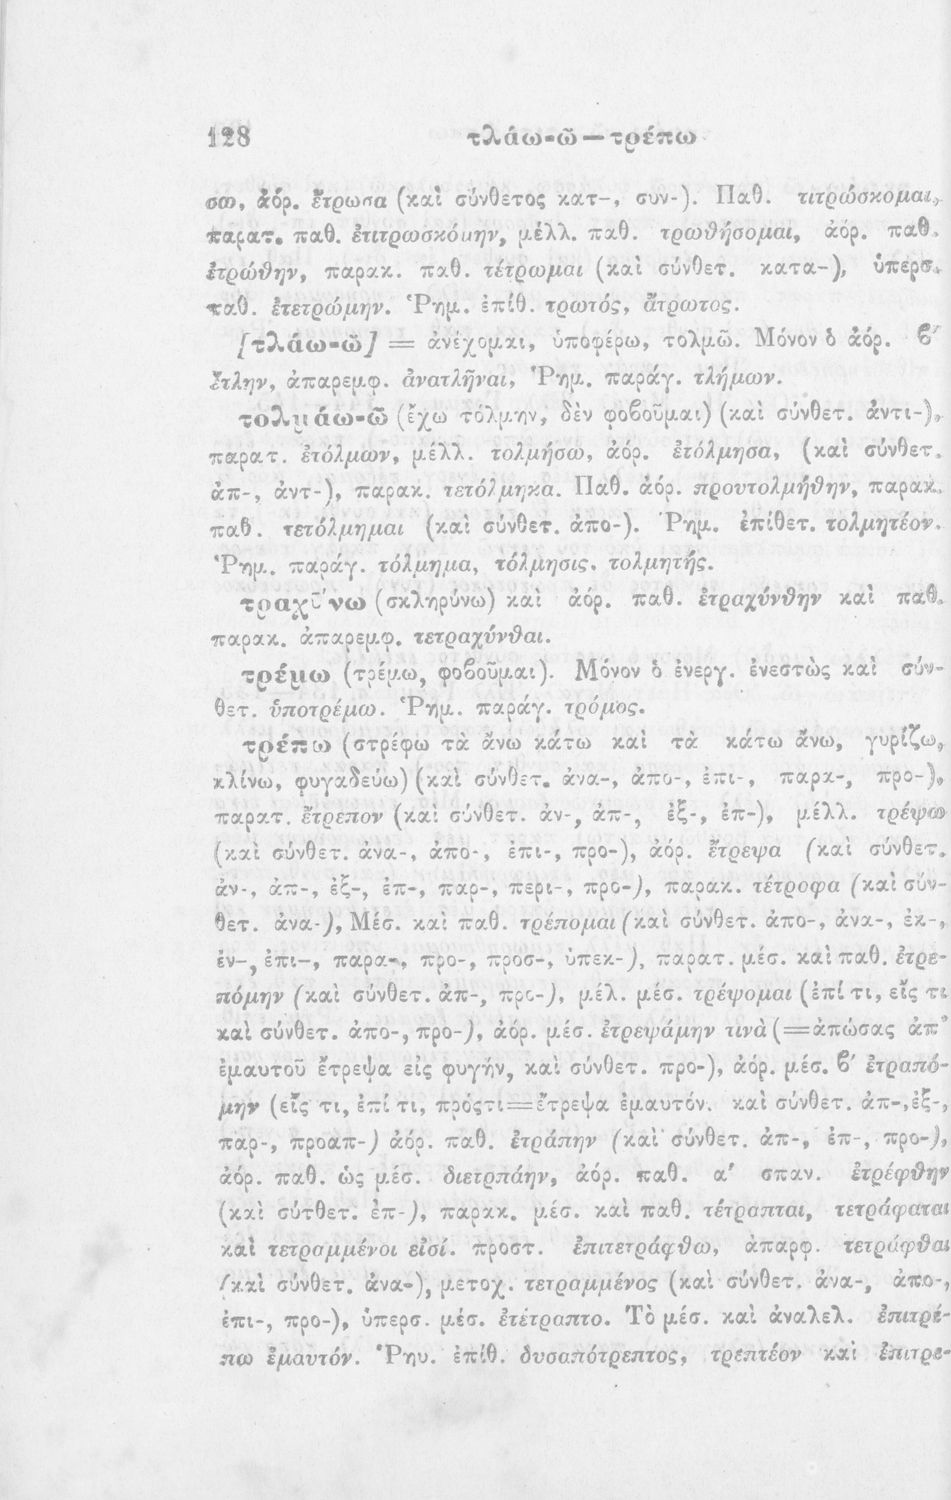 128 τλάω-ῶ — τρέπω
σω, ἀόρ. ἔτρωσα (καὶ σύνθετος κατ-, συν-). Παθ. τιτρώσκομαι,
παρατ. παθ. ἐτιτρωσκόμην, μέλλ. παθ. τρωθήσομαι, ἀόρ. παθ.
ἐτρώθην, παρακ. παθ. τέτρωμαι (καὶ σύνθετ. κατα-), ὑπερσ.
παθ. ἐτετρώμην. Ῥημ. ἐπίθ. τρωτός, ἄτρωτος.
[τλάω-ῶ] = ἀνέχομαι, ὑποφέρω, τολμῶ. Μόνον ὁ ἀόρ. ϐ΄
ἔτλην, ἀπαρεμφ. ἀνατλῆναι, Ῥημ. παράγ. τλήμων.
τολμάω-ῶ (ἔχω τόλμην, δὲν φοϐοῦμαι) (καὶ σύνθετ. ἀντι-),
παρατ. ἐτόλμων, μέλλ. τολμήσω, ἀόρ. ἐτόλμησα, (καὶ σύνθετ.
ἀπ-, ἀντ-), παρακ. τετόλμηκα. Παθ. ἀόρ. προυτολμήθην, παρακ.
παθ. τετόλμημαι (καὶ σύνθετ. ἀπο-). Ῥημ. ἐπίθετ. τολμητέον.
Ῥημ. παράγ. τόλμημα, τόλμησις. τολμητής.
τραχῦ́νω (σκληρύνω) καὶ ἀόρ. παθ. ἐτραχύνθην καὶ παθ.
παρακ. ἀπαρεμφ. τετραχύνθαι.
τρέμω (τρέμω, φοϐοῦμαι). Μόνον ὁ ἐνεργ. ἐνεστὼς καὶ σύν-
θετ. ὑποτρέμω. Ῥημ. παράγ. τρόμος.
τρέπω (στρέφω τὰ ἄνω κάτω καὶ τὰ κάτω ἄνω, γυρίζω,
κλίνω, φυγαδεύω) (καὶ σύνθετ. ἀνα-, ἀπο-, ἐπι-, παρα-, προ-),
παρατ. ἔτρεπον (καὶ σύνθετ. ἀν-, ἀπ-, ἐξ-, ἐπ-), μέλλ. τρέψω
(καὶ σύνθετ. ἀνα-, ἀπο-, ἐπι-, προ-), ἀόρ. ἔτρεψα (καὶ σύνθετ.
ἀν-, ἀπ-, ἐξ-, ἐπ-, παρ-, περι-, προ-), παρακ. τέτροφα (καὶ σύν-
θετ. ἀνα-), Μέσ. καὶ παθ. τρέπομαι (καὶ σύνθετ. ἀπο-, ἀνα-, ἐκ-,
ἐν-, ἐπι-, παρα-, προ-, προσ-, ὑπεκ-), παρατ. μέσ. καὶ παθ. ἐτρε-
πόμην (καὶ σύνθετ. ἀπ-, προ-), μέλ. μέσ. τρέψομαι (ἐπί τι, εἴς τι
καὶ σύνθετ. ἀπο-, προ-), ἀόρ. μέσ. ἐτρεψάμην τινὰ (=ἀπώσας ἀπ'
ἐμαυτοῦ ἔτρεψα εἰς φυγήν, καὶ σύνθετ. προ-), ἀόρ. μέσ. ϐ΄ ἐτραπό-
μην (εἴς τι, ἐπί τι, πρόςτι=ἔτρεψα ἐμαυτόν. καὶ σύνθετ. ἀπ-, ἐξ-,
παρ-, προαπ-) ἀόρ. παθ. ἐτράπην (καὶ σύνθετ. ἀπ-, ἐπ-, προ-),
ἀόρ. παθ. ὡς μέσ. διετρπάην, ἀόρ. παθ. α΄ σπαν. ἐτρέφθην
(καὶ σύτθετ. ἐπ-), παρακ. μέσ. καὶ παθ. τέτραπται, τετράφαται
καὶ τετραμμένοι εἰσί. προστ. ἐπιτετράφθω, ἀπαρφ. τετράφθαι
(καὶ σύνθετ. ἀνα-), μετοχ. τετραμμένος (καὶ σύνθετ. ἀνα-, ἀπο-,
ἐπι-, προ-), ὑπερσ. μέσ. ἐτέτραπτο. Τὸ μέσ. καὶ ἀναλελ. ἐπιτρέ-
πω ἐμαυτόν. Ῥημ. ἐπίθ. δυσαπότρεπτος, τρεπτέον καὶ ἐπιτρε-